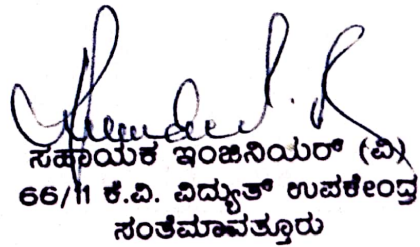 ಸಹಾಯಕ ಇಂಜಿನಿಯರ್ (ವಿ)
66/11 ಕೆ.ವಿ. ವಿದ್ಯುತ್ ಉಪಕೇಂದ್ರ
ಸಂತೆಮಾವತ್ತೂರು